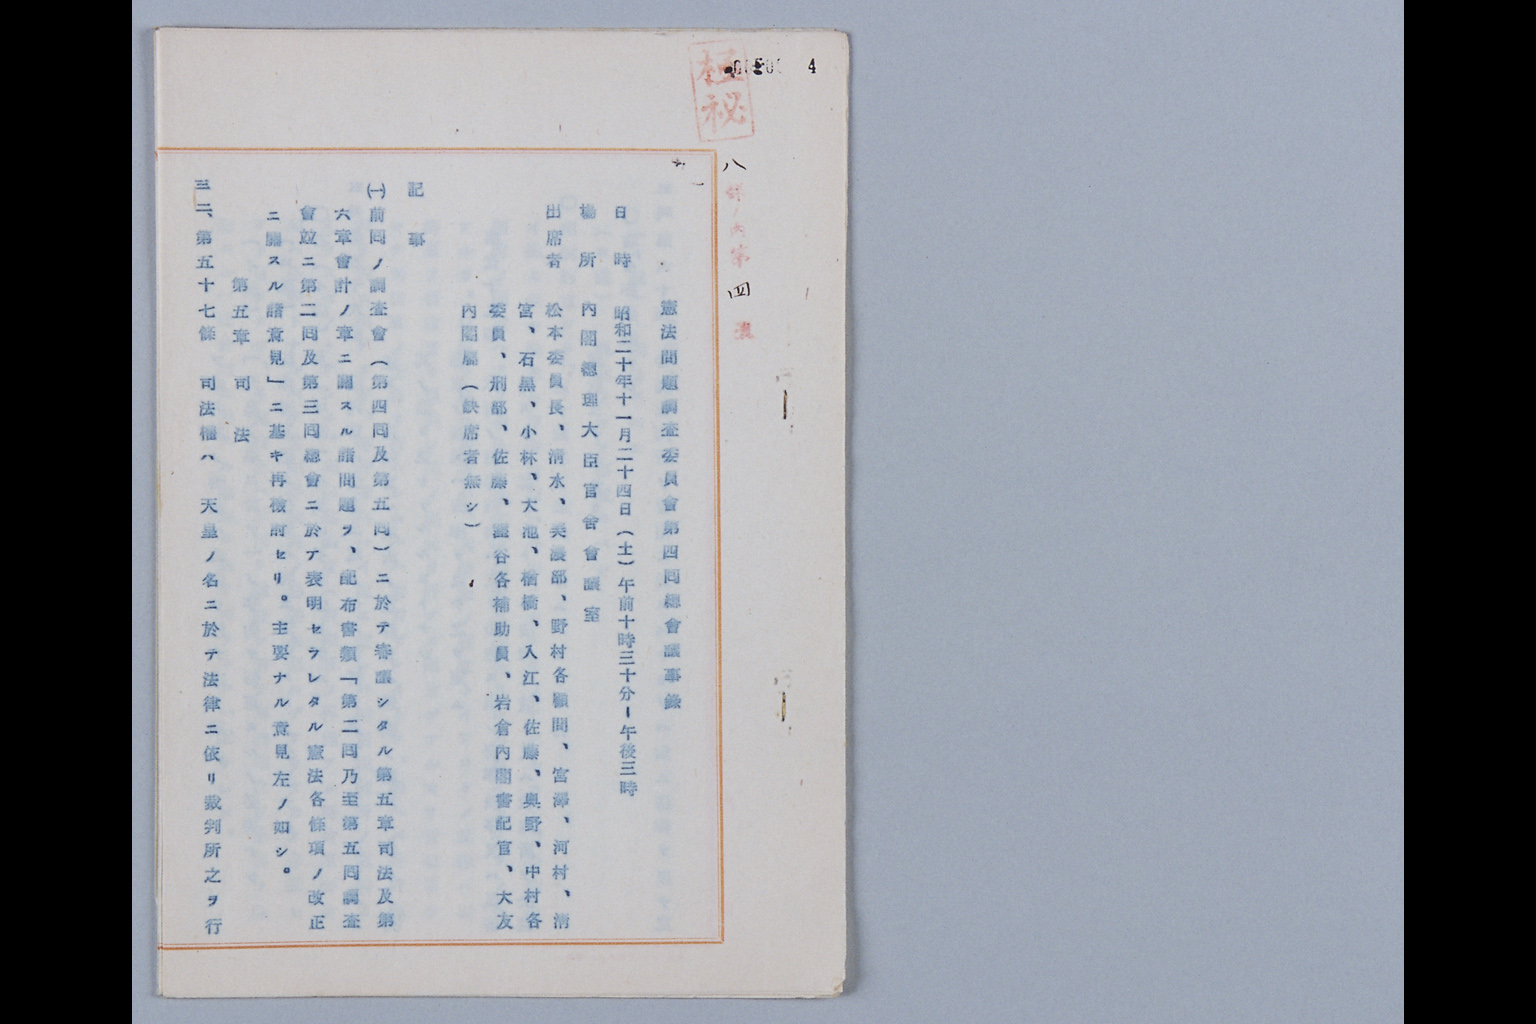 極秘
4
八 部ノ内第 四 號
憲法問題調査委員會第四囘總會議事錄
日時 昭和二十年十一月二十四日(土)午前十時三十分ー午後三時
場所 內閣總理大臣官舍會議室
出席者 松本委員長、淸水、美濃部、野村各顧問、宮澤、河村、淸
宮、石黑、小林、大池、楢橋、入江、佐藤、奧野、中村各
委員、刑部、佐藤、窪谷各補助員、岩倉內閣書記官、大友
內閣屬(缺席者無シ)
記事
㈠前囘ノ調査會(第四囘及第五囘)ニ於テ審議シタル第五章司法及第
六章會計ノ章ニ關スル諸問題ヲ、配布書類「第二囘乃至第五囘調査
會竝ニ第二囘及第三囘總會ニ於テ表明セラレタル憲法各條項ノ改正
ニ關スル諸意見」ニ基キ再檢討セリ。主要ナル意見左ノ如シ。
第五章 司法
三二、第五十七條 司法權ハ 天皇ノ名ニ於テ法律ニ依リ裁判所之ヲ行